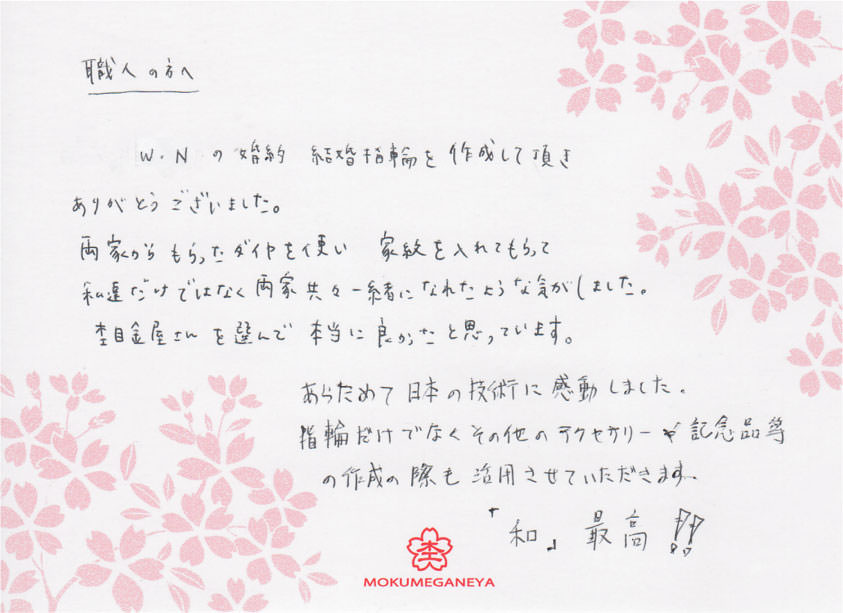 職人の方へ
W・Nの婚約 結婚指輪を作成して頂き
ありがとうございました。
両家からもらったダイヤを使い 家紋を入れてもらって
私達だけではなく両家共々一緒になれたような気がしました。
杢目金屋さんを選んで本当に良かったと思っています。
あらためて日本の技術に感動しました。
指輪だけでなくその他のアクセサリーや記念品等
の作成の際も活用させていただきます。
「和」最高!!
杢
MOKUMEGANEYA